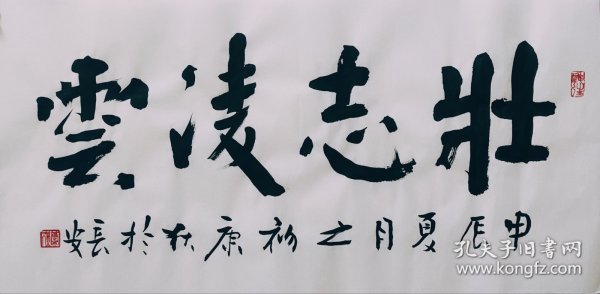 壯志凌雲
甲辰夏月之初康狄於長安
孔夫子旧书网
www.kongfz.com